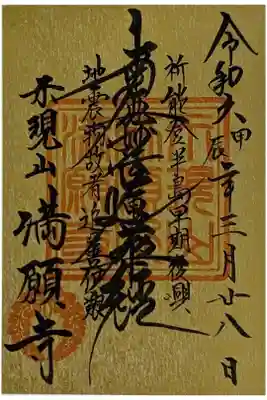 令和六甲辰年三月廿八日
祈能登半島早期復興
南無妙法蓮華経
地震物故者追善
示現山 満願寺